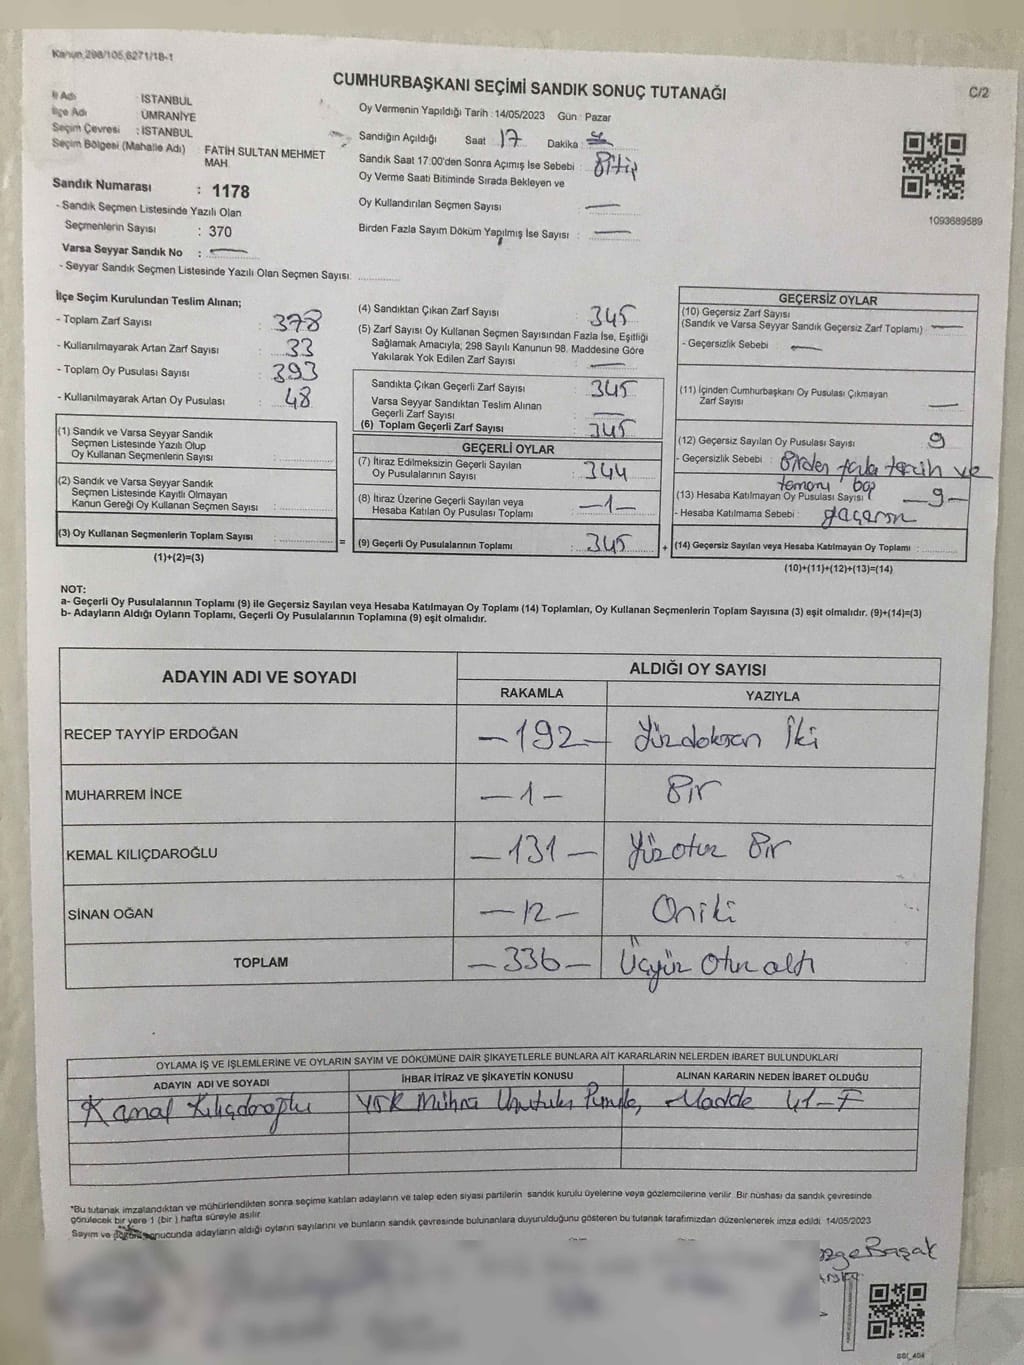 Kanun,298/105,6271/18-1
CUMHURBAŞKANI SEÇİMİ SANDIK SONUÇ TUTANAĞI
C/2
İl Adı : İSTANBUL
İlçe Adı : ÜMRANİYE
Seçim Çevresi : İSTANBUL
Seçim Bölgesi (Mahalle Adı) : FATİH SULTAN MEHMET
MAH.
Sandık Numarası : 1178
- Sandık Seçmen Listesinde Yazılı Olan
Seçmenlerin Sayısı : 370
Varsa Seyyar Sandık No : —
- Seyyar Sandık Seçmen Listesinde Yazılı Olan Seçmen Sayısı:
Oy Vermenin Yapıldığı Tarih : 14/05/2023 Gün : Pazar
Sandığın Açıldığı Saat : 17 Dakika :
Sandık Saat 17:00'den Sonra Açımış İse Sebebi : Bitip
Oy Verme Saati Bitiminde Sırada Bekleyen ve
Oy Kullandırılan Seçmen Sayısı : —
Birden Fazla Sayım Döküm Yapılmış İse Sayısı : —
1093689589
İlçe Seçim Kurulundan Teslim Alınan;
- Toplam Zarf Sayısı : 378
- Kullanılmayarak Artan Zarf Sayısı : 33
- Toplam Oy Pusulası Sayısı : 393
- Kullanılmayarak Artan Oy Pusulası : 48
(1) Sandık ve Varsa Seyyar Sandık
Seçmen Listesinde Yazılı Olup
Oy Kullanan Seçmenlerin Sayısı :
(2) Sandık ve Varsa Seyyar Sandık
Seçmen Listesinde Kayıtlı Olmayan
Kanun Gereği Oy Kullanan Seçmen Sayısı :
(3) Oy Kullanan Seçmenlerin Toplam Sayısı :
(1)+(2)=(3)
=
(4) Sandıktan Çıkan Zarf Sayısı : 345
(5) Zarf Sayısı Oy Kullanan Seçmen Sayısından Fazla İse, Eşitliği
Sağlamak Amacıyla; 298 Sayılı Kanunun 98. Maddesine Göre
Yakılarak Yok Edilen Zarf Sayısı : —
Sandıkta Çıkan Geçerli Zarf Sayısı : 345
Varsa Seyyar Sandıktan Teslim Alınan
Geçerli Zarf Sayısı : —
(6) Toplam Geçerli Zarf Sayısı : 345
GEÇERLİ OYLAR
(7) İtiraz Edilmeksizin Geçerli Sayılan
Oy Pusulalarının Sayısı : 344
(8) İtiraz Üzerine Geçerli Sayılan veya
Hesaba Katılan Oy Pusulası Toplamı : —1—
(9) Geçerli Oy Pusulalarının Toplamı : 345
+
GEÇERSİZ OYLAR
(10) Geçersiz Zarf Sayısı
(Sandık ve Varsa Seyyar Sandık Geçersiz Zarf Toplamı) : —
- Geçersizlik Sebebi : —
(11) İçinden Cumhurbaşkanı Oy Pusulası Çıkmayan
Zarf Sayısı : —
(12) Geçersiz Sayılan Oy Pusulası Sayısı : 9
- Geçersizlik Sebebi : Birden fazla tercih ve
tamamı boş
(13) Hesaba Katılmayan Oy Pusulası Sayısı : —9—
- Hesaba Katılmama Sebebi :
(14) Geçersiz Sayılan veya Hesaba Katılmayan Oy Toplamı :
(10)+(11)+(12)+(13)=(14)
NOT:
a- Geçerli Oy Pusulalarının Toplamı (9) ile Geçersiz Sayılan veya Hesaba Katılmayan Oy Toplamı (14) Toplamları, Oy Kullanan Seçmenlerin Toplam Sayısına (3) eşit olmalıdır. (9)+(14)=(3)
b- Adayların Aldığı Oyların Toplamı, Geçerli Oy Pusulalarının Toplamına (9) eşit olmalıdır.
ADAYIN ADI VE SOYADI
ALDIĞI OY SAYISI
RAKAMLA YAZIYLA
RECEP TAYYİP ERDOĞAN —192— Yüzdoksan İki
MUHARREM İNCE —1— Bir
KEMAL KILIÇDAROĞLU —131— Yüzotuz Bir
SİNAN OĞAN —12— Oniki
TOPLAM —336— Üçyüz Otuz altı
OYLAMA İŞ VE İŞLEMLERİNE VE OYLARIN SAYIM VE DÖKÜMÜNE DAİR ŞİKAYETLERLE BUNLARA AİT KARARLARIN NELERDEN İBARET BULUNDUKLARI
ADAYIN ADI VE SOYADI İHBAR İTİRAZ VE ŞİKAYETİN KONUSU ALINAN KARARIN NEDEN İBARET OLDUĞU
Kamal Kılıçdaroğlu YSK Mührü Madde 41-F
*Bu tutanak imzalandıktan ve mühürlendikten sonra seçime katılan adayların ve talep eden siyasi partilerin sandık kurulu üyelerine veya gözlemcilerine verilir. Bir nüshası da sandık çevresinde
görülecek bir yere 1 (bir) hafta süreyle asılır.
Sayım ve döküm sonucunda adayların aldığı oyların sayılarını ve bunların sandık çevresinde bulunanlara duyurulduğunu gösteren bu tutanak tarafımızdan düzenlenerek imza edildi. 14/05/2023
Başak